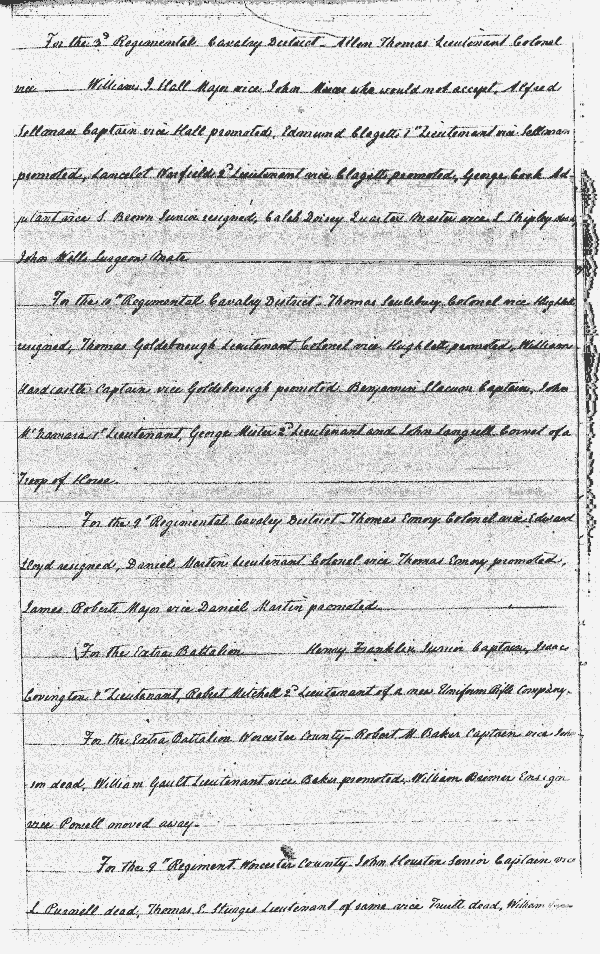 For the 3d Regimental Cavalry District - Allen Thomas Lieutenant Colonel
vice William J. Hall Major vice John who would not accept, Alfred
Sellman Captain vice Hall promoted, Edmund Clagett 1st Lieutenant vice Sellman
promoted, Lancelot Warfield 2d Lieutenant vice Clagett promoted, George Cook Ad-
jutant vice S. Brown Junior resigned, Caleb Dorsey Quarter Master vice L Shipley
John Wells Surgeons Mate
For the 10th Regimental Cavalry District - Thomas Colonel vice Hughlett
resigned, Thomas Goldsborough Lieutenant Colonel vice Hughlett promoted, William
Hardcastle Captain vice Goldsborough promoted. Benjamin Slacum Captain, John
McNamara 1st Lieutenant, George Mister 2d Lieutenant and John Langrell Cornet of a
Troop of Horse.
For the 9th Regimental Cavalry District - Thomas Emory Colonel vice Edward
Lloyd resigned, Daniel Martin Lieutenant Colonel vice Thomas Emory promoted,
James Roberts Major vice Daniel Martin promoted.
For the Extra Battalion Henry Franklin Junior Captain, Isaac
Covington 1st Lieutenant, Robert Mitchell 2d Lieutenant of a new Uniform Rifle Company.
For the Extra Battalion Worcester County - Robert M. Baker Captain vice
son dead, William Gault Lieutenant vice Baker promoted, William Ensign
vice Powell moved away -
For the 9th Regiment Worcester County - John Houston Senior Captain vice
L. Purnell dead, Thomas E. Sturges Lieutenant of same vice Truitt dead, William